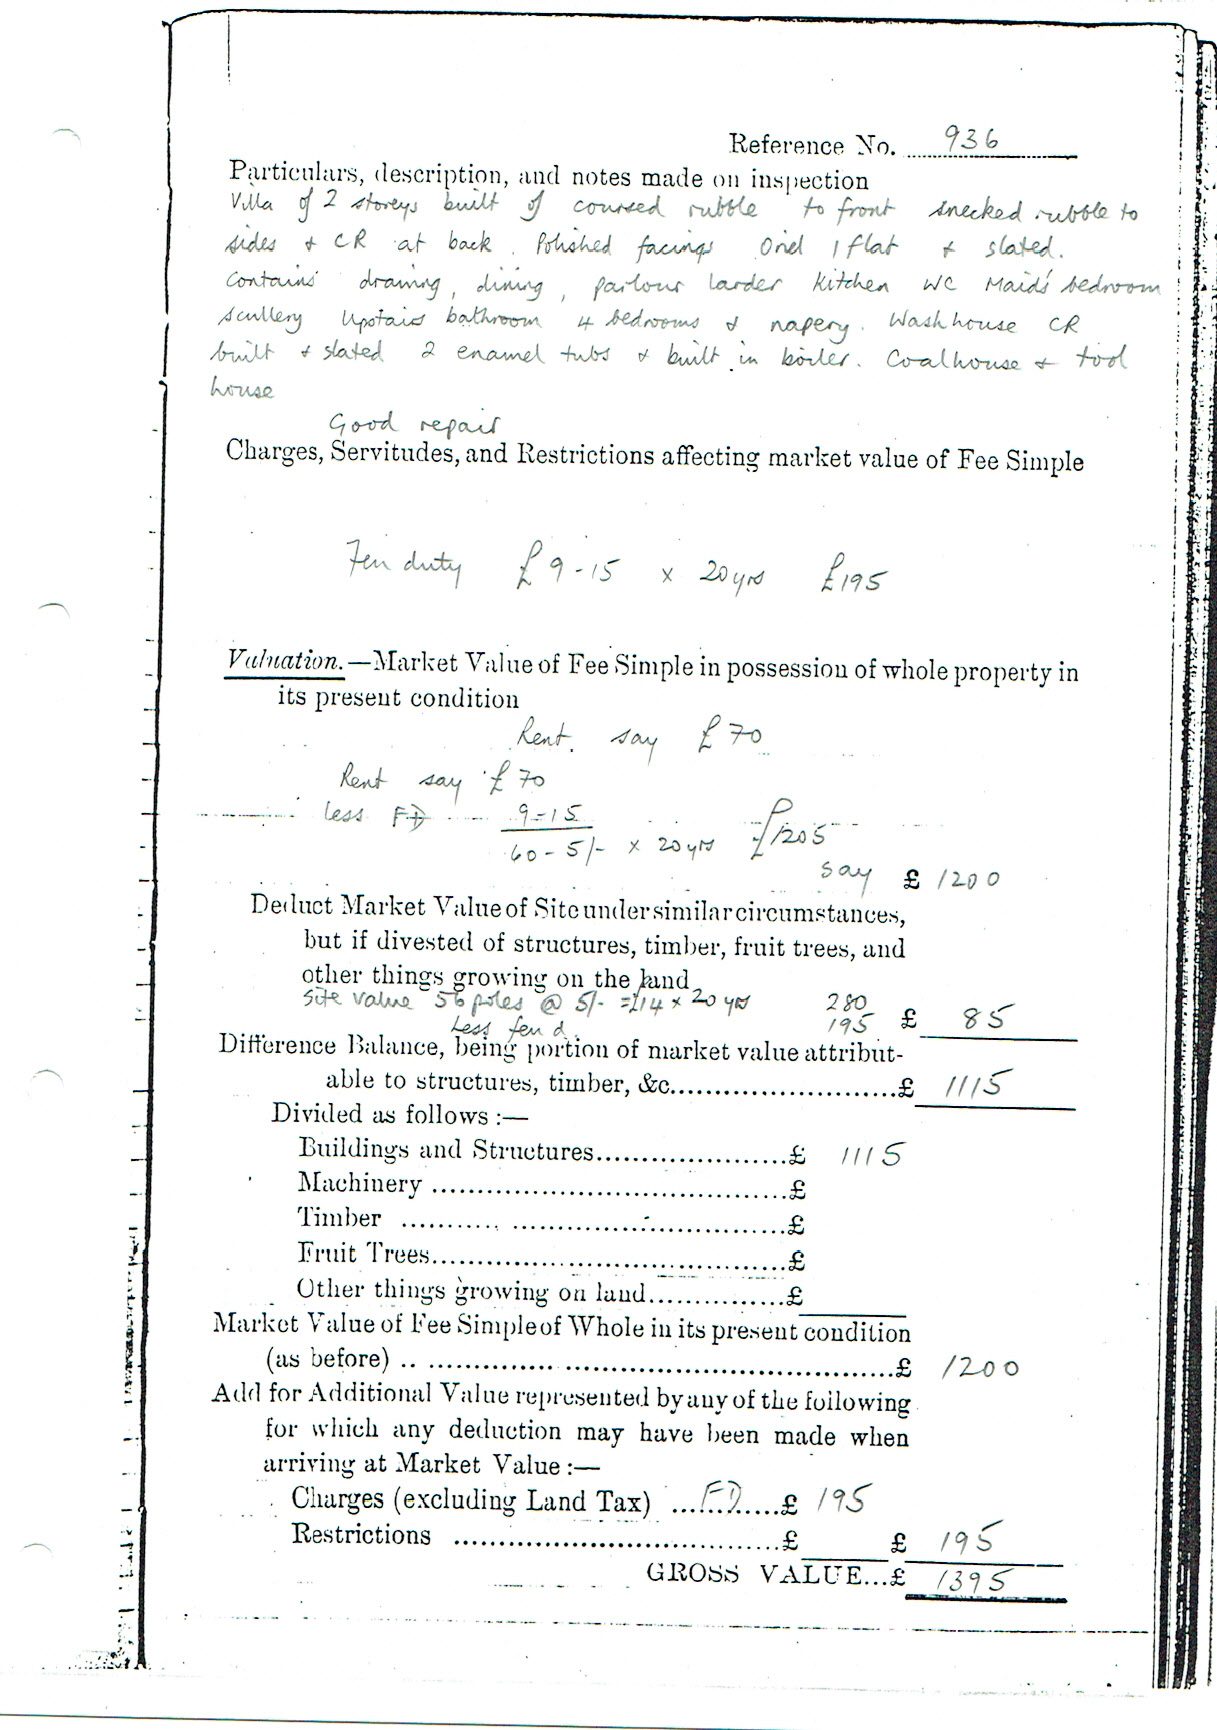 Reference No. 936
Particulars, description, and notes made on inspection
Villa of 2 storeys built of coursed rubble to front snecked rubble to
sides & CR at back. Polished facings Oriel 1 flat & slated.
Contains drawing, dining, parlour larder kitchen WC Maid's bedroom
scullery Upstairs bathroom 4 bedrooms & napery. Wash house CR
built & slated 2 enamel tubs & built in boiler. Coalhouse & tool
house
Good repair
Charges, Servitudes, and Restrictions affecting market value of Fee Simple
Feu duty £9-15 x 20 yrs £195
Valuation.—Market Value of Fee Simple in possession of whole property in
its present condition
Rent. say £70
Rent say £70
less FD 9-15
60-5/- x 20 yrs £1205
say £ 1200
Deduct Market Value of Site under similar circumstances,
but if divested of structures, timber, fruit trees, and
other things growing on the land
Site value 56 poles @ 5/- = £14 x 20 yrs 280
Less feu d. 195 £ 85
Difference Balance, being portion of market value attribut-
able to structures, timber, &c. £ 1115
Divided as follows :—
Buildings and Structures £ 1115
Machinery £
Timber £
Fruit Trees £
Other things growing on land £
Market Value of Fee Simple of Whole in its present condition
(as before) £ 1200
Add for Additional Value represented by any of the following
for which any deduction may have been made when
arriving at Market Value :—
Charges (excluding Land Tax) FD £ 195
Restrictions £ £ 195
GROSS VALUE...£ 1395